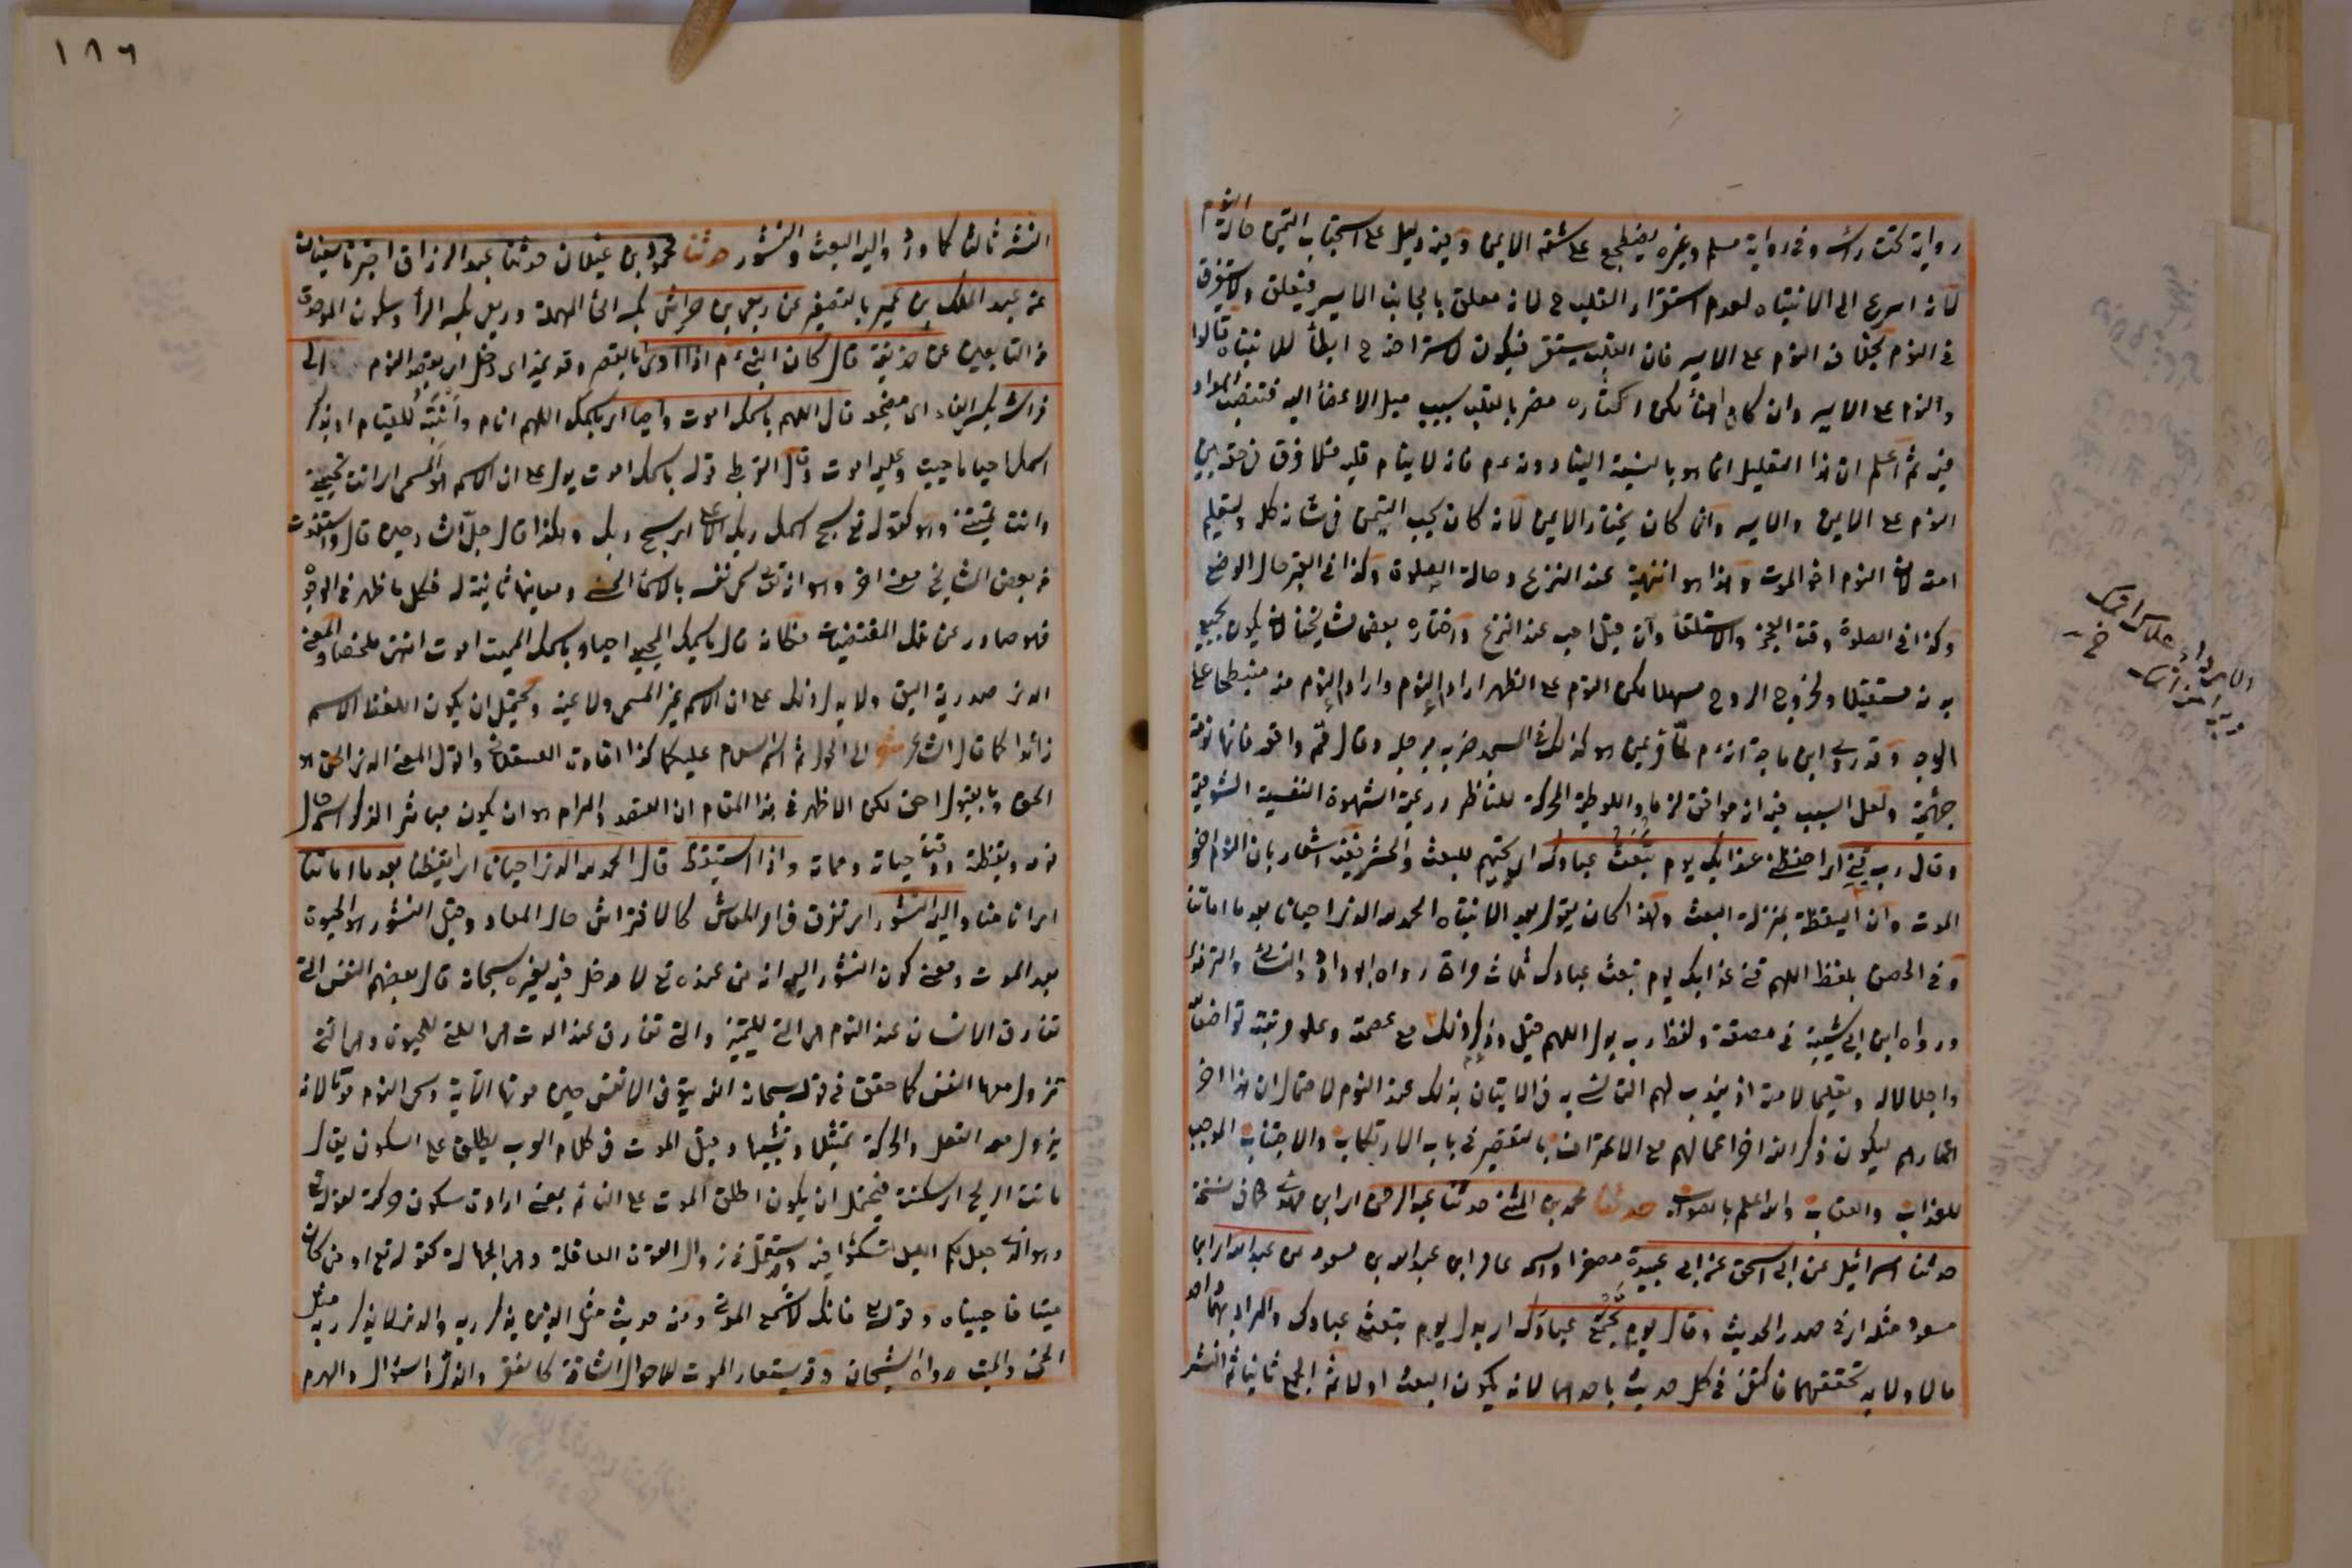 رواية تحت راسه وفى رواية مسلم وغيره يضطجع على شقه الايمن وفيه دليل على استحباب التيمن حالة النوم
لانه اسرع الى الانتباه لعدم استقرار القلب ح لانه معلق بالجانب الايسر فيتعلق ولا يستغرق
فى النوم بخلاف النوم على الايسر فان القلب يستقر فيكون لاستراحته ح ابطأ للانتباه قالوا
والنوم على الايسر وان كان اهنأ لكن اكثاره مضر بالقلب بسبب ميل الاعضأ اليه فتنصب المواد
فيه ثم اعلم ان هذا التعليل انما هو بالنسبة الينا دونه عم فانه لا ينام قلبه فلا فرق فى حقه بين
النوم على الايمن والايسر وانما كان يختار الايمن لانه كان يحب التيمن فى شانه كله ولتعليم
امته لان النوم اخو الموت وهذا هو عند النزع وحالة الصلوة وكذا فى القبر حال الوضع
وكذا فى الصلوة وقت العجز والاستلقأ وان قيل احب عند النزع واختاره بعض مشايخنا لانه يكون بجميع
بدنه مستقبلا ولخروج الروح سهلا لكن النوم على الظهر اردأ النوم واردأ النوم منه منبطحا على
الوجه وقد روى ابن ماجة انه عم لما مر بمن هو كذلك فى المسجد ضربه برجله وقال قم واقعد فانها نومة
جهنمية ولعل السبب فيه انه موافق واللوطية المحركة للناظر رغبة الشهوة النفسية الشومية
وقال رب قنى اى احفظنى عذابك يوم تبعث عبادك اى تحييهم للبعث والحشر ففيه اشعار بان النوم اخو
الموت وان اليقظة بمنزلة البعث ولهذا كان يقول بعد الانتباه الحمد لله الذى احيانا بعد ما اماتنا
وفى الحصن بلفظ اللهم قنى عذابك يوم تبعث عبادك ثلاث مرات رواه ابو داود والنسائى والترمذى
ورواه ابن ابى شيبة فى مصنفه ولفظ رب بدل اللهم قيل وذكر ذلك مع عصمته وعلو مرتبته تواضعا لله
واجلالا له وتعليما لامته اذ يندب لهم التاسى به فى الاتيان بذلك عند النوم لاحتمال ان هذا اخر
اعمارهم ليكون ذكر الله اخر اعمالهم مع الاعتراف بالتقصير فى باب الارتكاب والاجتناب الموجب
للعذاب والعقاب والله اعلم بالصواب حدثنا محمد بن المثنى حدثنا عبد الرحمن اى ابن مهدى كما فى نسخة
حدثنا اسرائيل عن ابى اسحق عن ابى عبيدة مصغرا واسمه عامر ابن عبد الله بن مسعود عن عبد الله اى ابن
مسعود مثله اى فى صدر الحديث وقال يوم تجمع عبادك اى بدل يوم تبعث عبادك والمراد بهما واحد
مالا ولابد تحققهما فاكتفى فى كل حديث باحدهما لانه يكون البعث اولا ثم الجمع ثانيا ثم النشر
١٨٦
النشر ثالثا كما ورد واليه البعث والنشور حدثنا محمود بن غيلان حدثنا عبد الرزاق اخبرنا سفيان
عن عبد الملك بن عمير بالتصغير عن ربعى بن حراش بكسر الحأ المهملة وربعى بكسر الرأ وسكون الموحدة
من التابعين عن حذيفة قال كان النبى عم اذا اوى بالقصر وقد يمد اى دخل اى بقصد النوم الى
فراشه بكسر الفاء اى مضجعه قال اللهم باسمك اموت واحيا اى باسمك اللهم انام وانتبه للقيام او بذكر
اسمك احيا ما حييت وعليه اموت وقال القرطبى قوله باسمك اموت يدل على ان الاسم هو المسمى اى انت تحيينى
وانت تميتنى وهو كقوله تع سبح اسم ربك الاعلى اى سبح ربك وهكذا قال جل الشارحين قال واستفدت
من بعض المشايخ معنى اخر وهو انه تع سمى نفسه بالاسمأ الحسنى ومعانيها ثابتة له فكل ما ظهر فى الوجود
فهو صادر عن تلك المقتضيات فكانه قال باسمك المحيى احيا وباسمك المميت اموت انتهى ملخصا والمعنى
الذى صدرت به اليق ولا يدل ذلك على ان الاسم غير المسمى ولا عينه ويحتمل ان يكون لفظ الاسم
زائدا كما قال الشاعر شعر الى الحول ثم اسم السلام عليكما كذا افاده العسقلانى واقول المعنى الذى هو
الحق وبالقبول احق لكن الاظهر فى هذا المقام ان القصد والمرام هو ان يكون مباشر الذكر اسم حال
نومه ويقظته ووقت حياته ومماته واذا استيقظ قال الحمد لله الذى احيانا اى ايقظنا بعد ما اماتنا
اى انامنا واليه النشور اى تفرق فى امر المعاش كالافتراش حال المعاد وقيل النشور هو الحيوة
بعد الموت ومعنى كون النشور اليه انه من عنده تع لا مدخل فيه لغيره سبحانه قال بعضهم النفس التى
تفارق الانسان عند النوم هى التى للتمييز والتى تفارق عند الموت هى التى للحيوة وهى التى
تزول معها النفس كما حقق فى قوله سبحانه الله يتوفى الانفس حين موتها الاية وسمى النوم موتا لانه
يزول معه العقل والحركة تمثيلا وتشبيها وقيل الموت فى كلام العرب يطلق على السكون يقال
ماتت الريح اى سكنت فيحتمل ان يكون اطلق الموت على النائم بمعنى ارادة سكون حركته لقوله تع
وهو الذى جعل لكم الليل لتسكنوا فيه وقد يستعمل فى زوال القوة العاقلة وهى الجهالة كقوله تع او من كان
ميتا فاحييناه وقوله تع فانك لا تسمع الموتى ومنه حديث مثل الذى يذكر ربه والذى لا يذكر ربه مثل
الحى والميت رواه الشيخان وقد يستعار الموت للاحوال الشاقة كالفقر والذل والسؤال والهرم